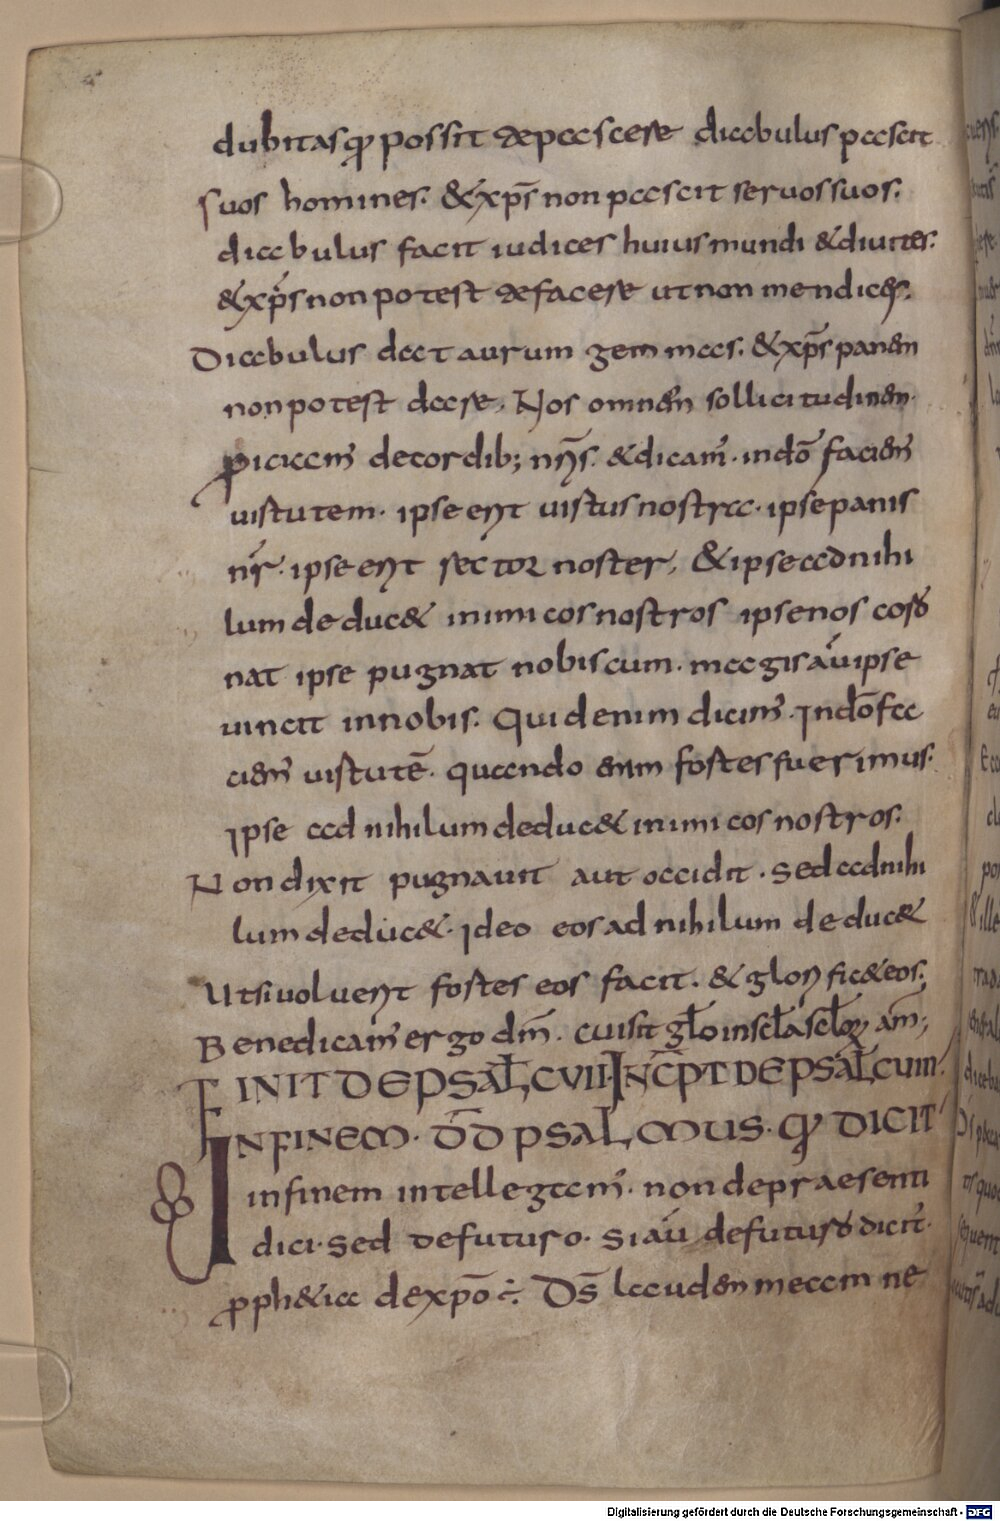 dubitas qđ possit te pascere diabulus pascit
suos homines. & xp̄s non pascit seruos suos.
diabulus facit iudices huius mundi & diuites.
& xp̄s non potest te facere ut non mendices.
Diabulus dat aurum gemmas. & xp̄s panem
non potest dare, Nos omnem sollicitudinem
piciam̄ de cordib; nr̄is. & dicam̄. in dō faciem̄
uirtutem. ipse erit uirtus nostra. ipse panis
nr̄. ipse erit rector noster, & ipse ad nihi
lum deduc& inimicos nostros ipse nos coro
nat ipse pugnat nobiscum. magis aū ipse
uincit in nobis. Quid enim dicim̄. In dō fa
ciem̄ uirtutē. quando enim fortes fuerimus.
Ipse ad nihilum deduc& inimicos nostros.
Non dixit pugnauit aut occidit. sed ad nihi
lum deduc&. Ideo eos ad nihilum deduc&
Ut si uoluerit fortes eos facit. & glorific& eos;
Benedicam̄ ergo dm̄. cui sit gło in scła scłoꝝ am̄;
FINIT DE PSAŁ CVII. INCPT DE PSAŁ CVIII.
IN FINEM. DD PSALMUS. qđ DICIT
in finem intellegam̄. non de praesenti
dici. sed de futuro. Si aū de futuro dicit̄.
pph&ia de xpō ÷. Ds̄ laudem meam ne
Digitalisierung gefördert durch die Deutsche Forschungsgemeinschaft - DFG